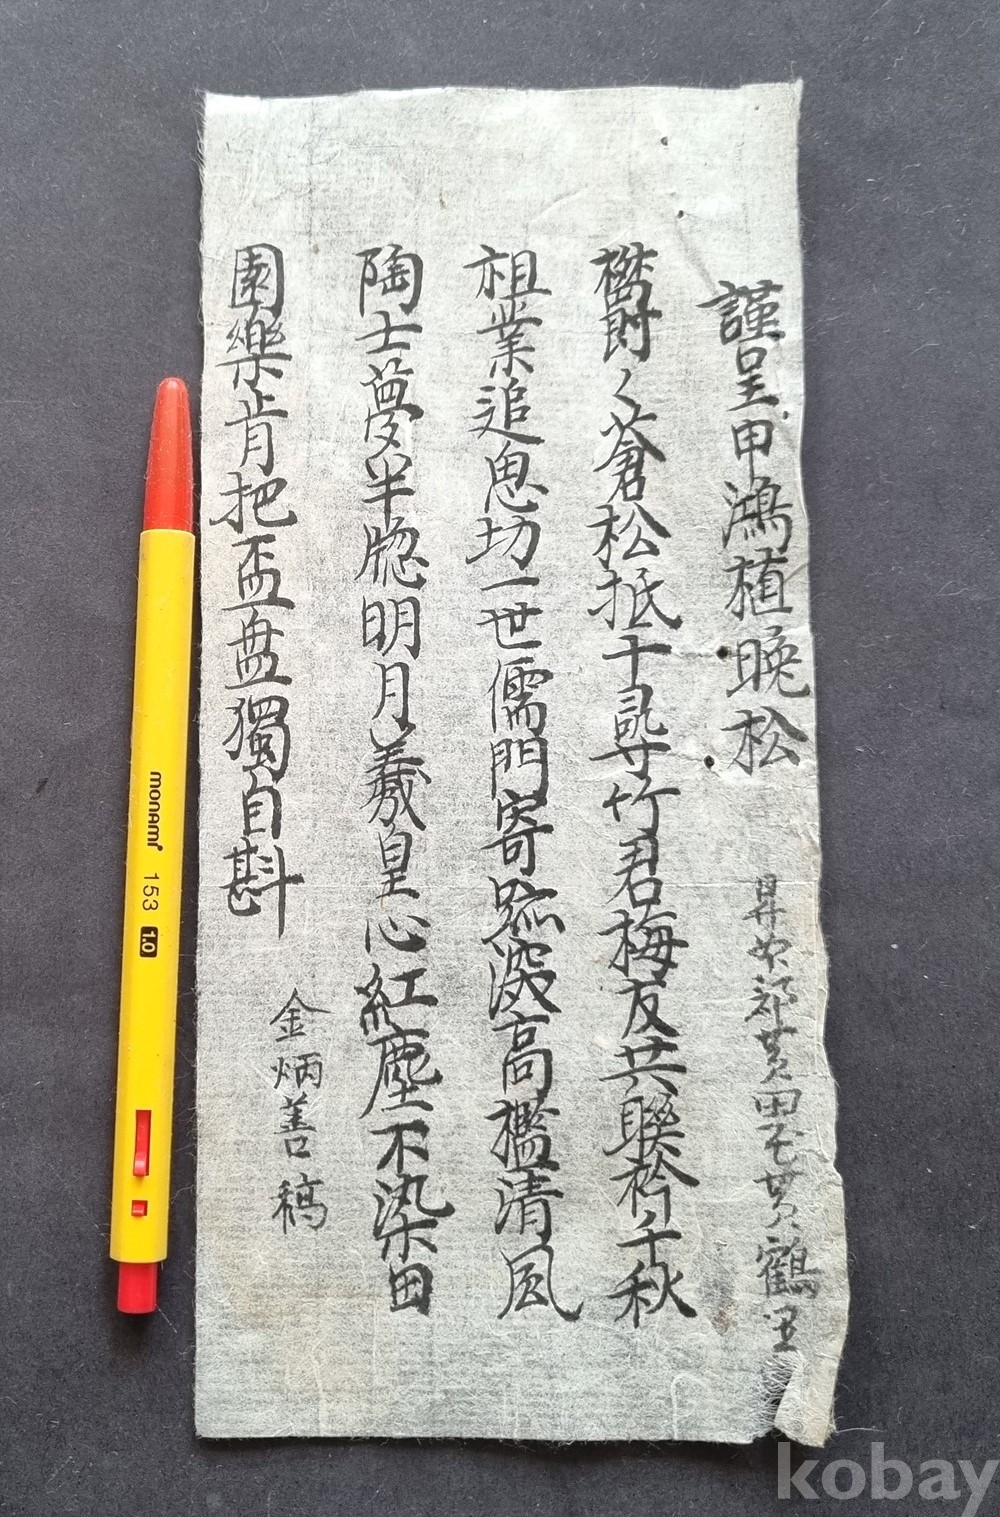 謹呈申鴻植晩松
昇州郡黄田面黄鶴里
欝々蒼松抵千尋竹君梅友共聯衿千秋
祖業追思切一世儒門寄跡深高檻清風
陶士夢半牕明月羲皇心紅塵不染田
園樂肯把盃盤獨自斟
金炳善稿
monami 153 1.0
kobay